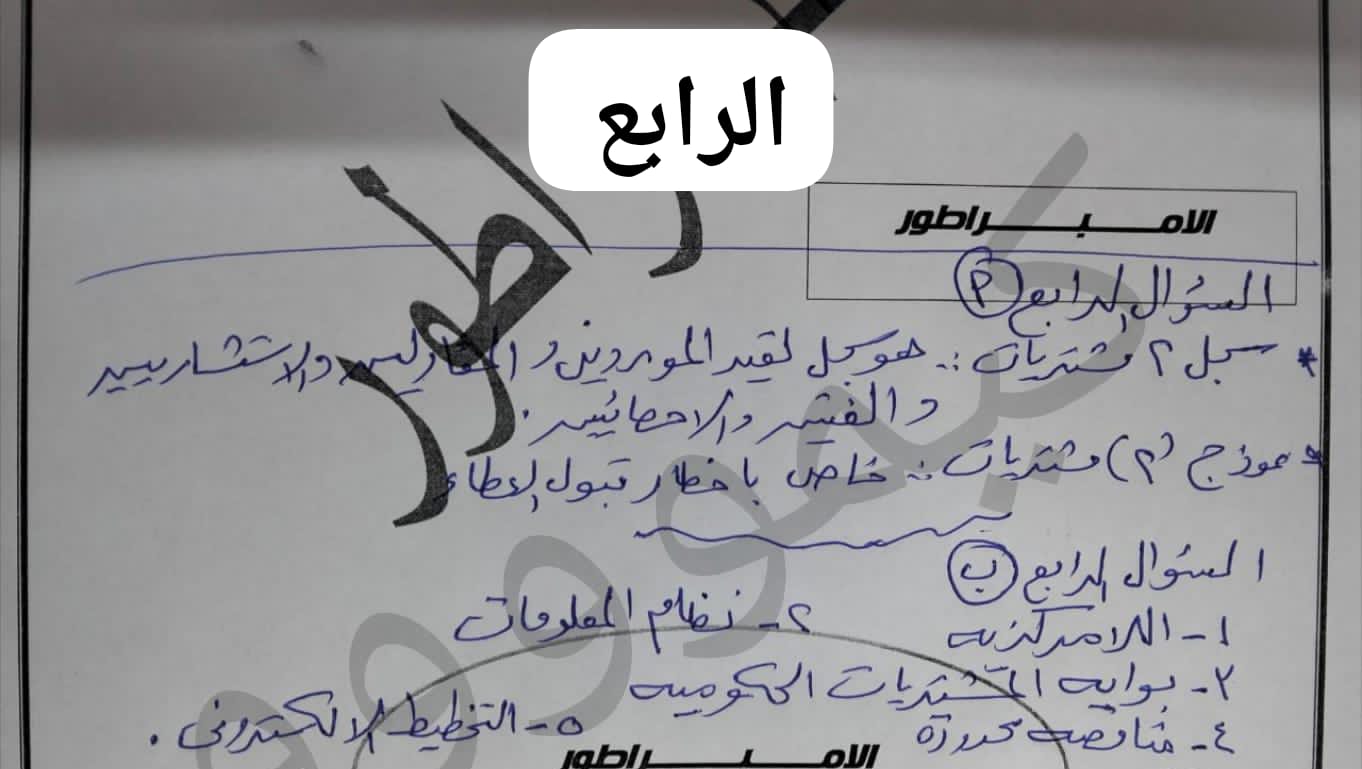 الرابع
الامبراطور
السؤال الرابع (P)
* سجل ٢ مشتريات :. هو سجل لقيد الموردين و المقاولين والاستشاريين
و الفنيين والاحصائيين .
* نموذج (٣) مشتريات :. خاص باخطار قبول العطاء
السؤال الرابع (ب)
١- اللامركزيه ٢- نظام المعلومات
٣- بوابه المشتريات الحكوميه
٤- مناقصه محدودة ٥- التخطيط الالكترونى .
الامبراطور